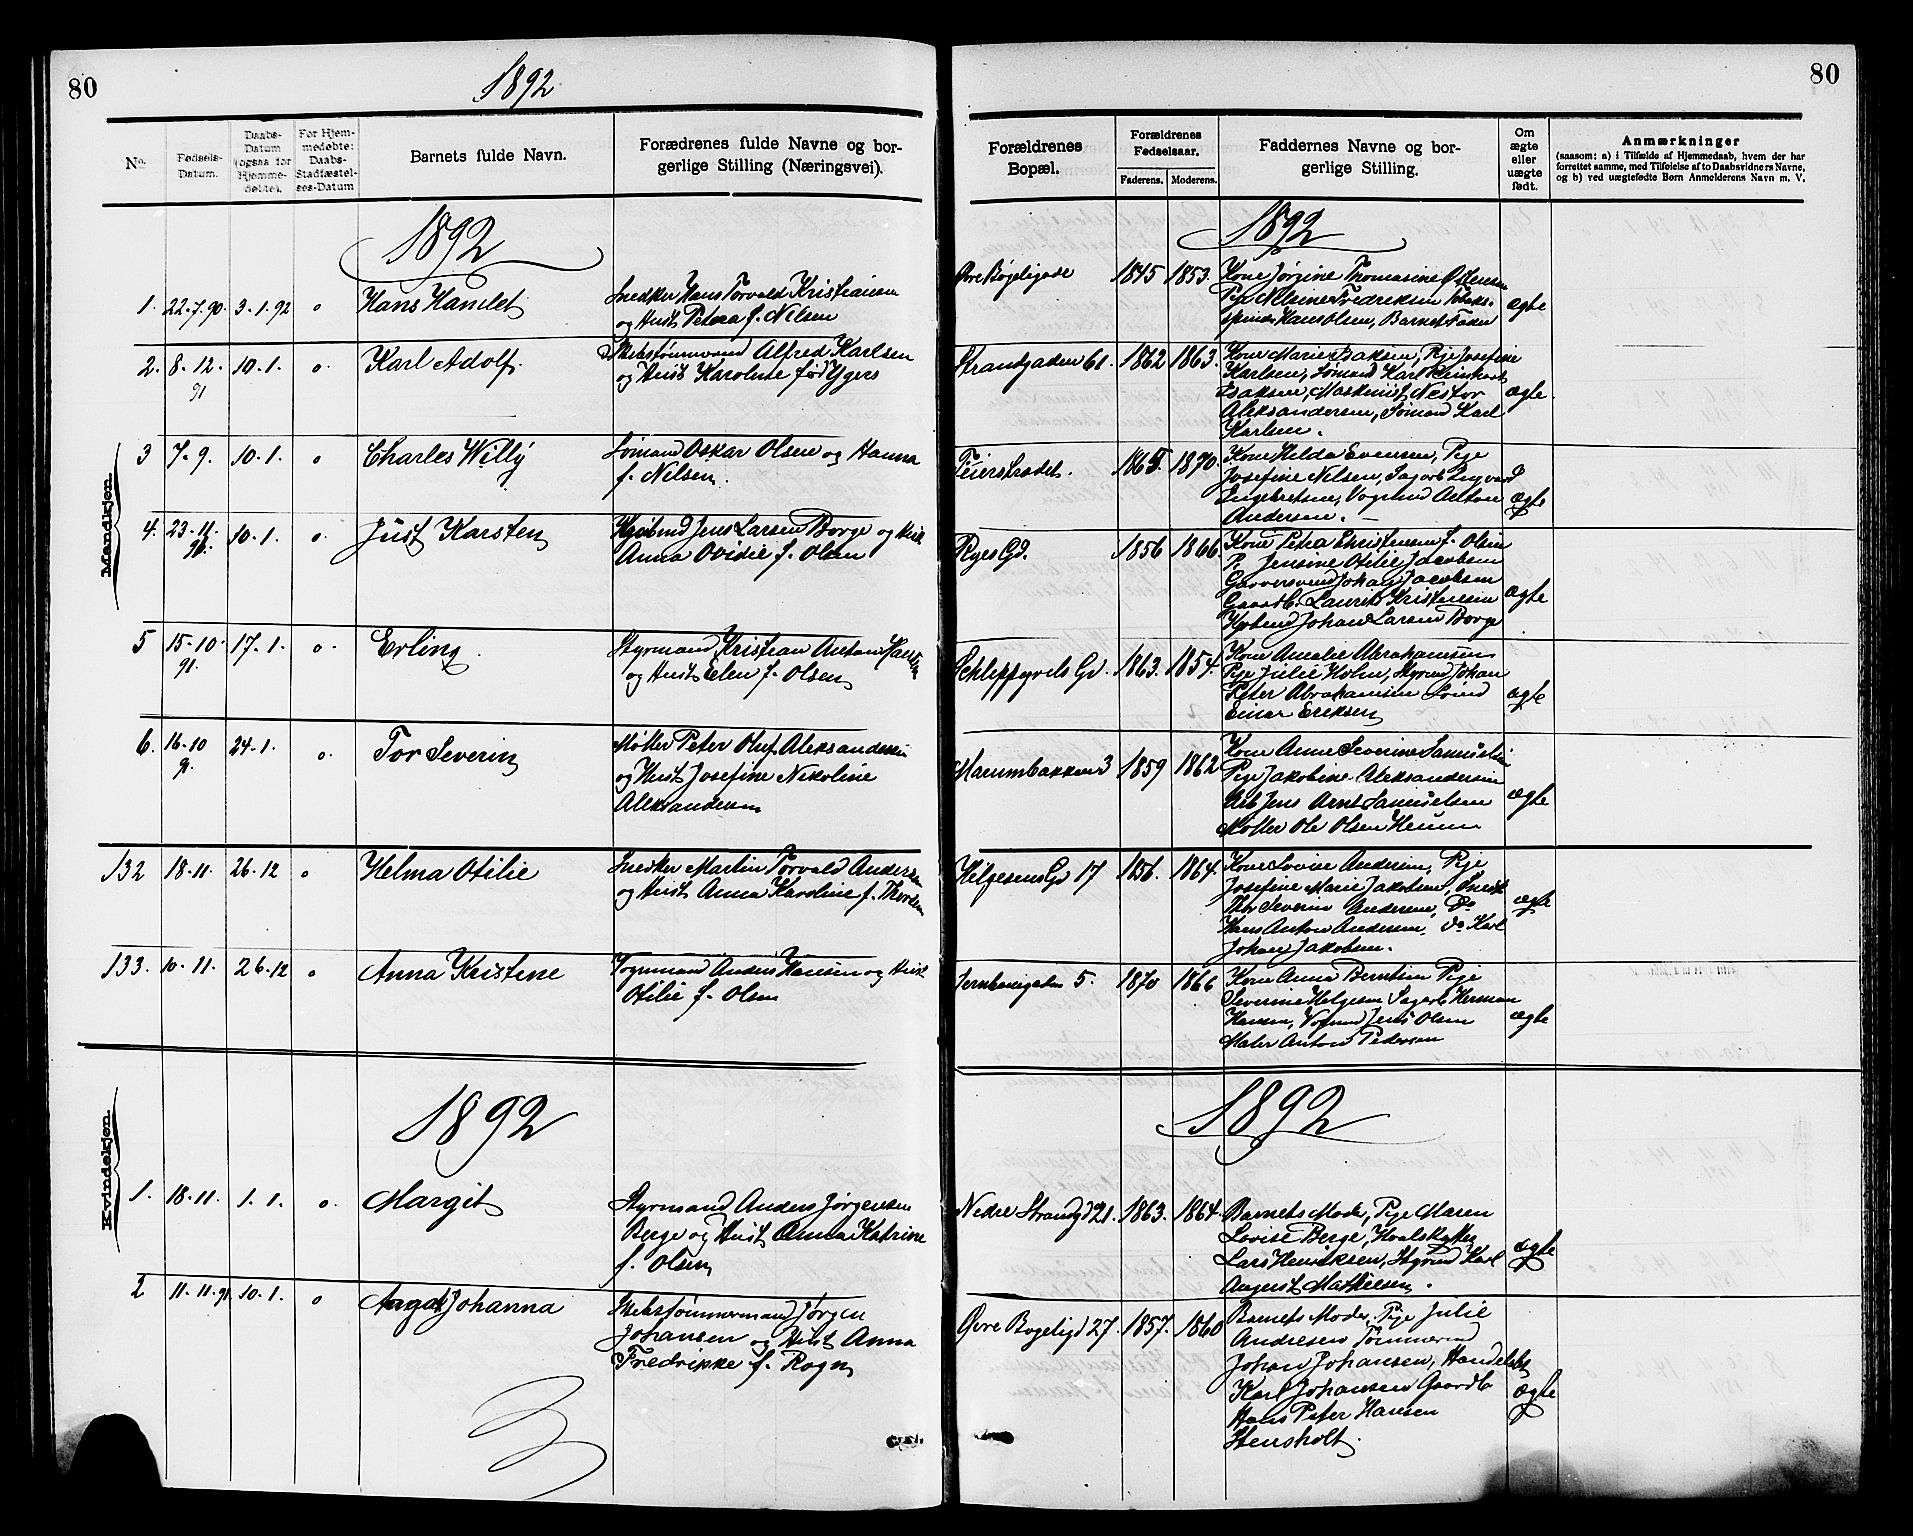 80
1892
No.
Fødsels-
Datum.
Daabs-
Datum
(ogsaa for
Hjemme-
døbte).
For Hjem-
medøbte:
Daabs-
Stadfæstel-
ses-Datum
Barnets fulde Navn.
Forædrenes fulde Navne og bor-
gerlige Stilling (Næringsvei).
Mandkjøn
1892
1. 22.7.90. 3.1.92 o Hans Hamlet
Snedker Hans Torvald Kristiansen
og Hust Petra f. Nilsen
2. 8.12. 10.1. o. Karl Adolf.
91
Skibstømmermand Alfred Karlsen
og Hust Karoline født
3 7.9. 10.1. o Charles Willy
Sømand Oskar Olsen og Hanna
f. Nilsen.
4. 23.11. 10.1. o. Just Karsten
91.
Jens Larsen Borge og Hust
Anna Ovidie f. Olsen
5 15.10. 17.1. o. Erling.
91.
Styrmand Kristian Anton Hansen
og Hust Elen f. Olsen
6. 16.10 24.1. o. Tor Severin
91
Møller Peter Oluf Aleksandersen
og Hust Josefine Nikoline
Aleksandersen
132 18.11. 26.12 o Helma Otilie
Snedker Martin Torvald Andersen
og Hust Anna Karoline f. Thorsen
133. 10.11. 26.12 o Anna Kristine
Vognmand Anders Hansen og Hust
Otilie f. Olsen
Kvindekjøn
1892
1. 18.11. 1.1. o. Margit
Styrmand Anders Jørgensen
Berge og Hust Anna Katrine
f. Olsen
2 11.11.91 10.1. o Aagot Johanna
Skibstømmermand Jørgen
Johansen og Hust Anna
Fredrikke f. Rogn
80
Forældrenes
Bopæl.
Forældrenes
Fødselsaar.
Faderens. Moderens.
Faddernes Navne og bor-
gerlige Stilling.
Om
ægte
eller
uægte
født.
Anmærkninger
(saasom: a) i Tilfælde af Hjemmedaab, hvem der har
forrettet samme, med Tilføielse af to Daabsvidners Navne,
og b) ved uægtefødte Børn Anmelderens Navn m. V.
1892
Øvre Bøgeligade 1845 1853.
Kone Jørgine Thomasine
Pige Nelsine Fredriksen
Hans Olsen, Barnets Fader
ægte
Strandgaden 61. 1862 1863.
Kone Marie Isaksen, Pige Josefine
Karlsen, Sømand Karl Reinhart
Isaksen, Maskinist Nestor
Aleksandersen, Sømand Karl
Karlsen.
ægte.
Feierstrædet. 1865. 1870.
Kone Hilda Evensen, Pige
Josefine Nilsen, Sagarb Ingvard
Ingebretsen, Vognmd Anton
Andersen.
ægte
Ryes Gd. 1856 1866.
Kone Petra Christensen f. Olsen
P. Jensine Otilie Jacobsen
Garversvend Johan Jacobsen
Gaardb. Laurits Kristensen
Johan Larsen Borge
ægte
Schleppgrels Gd. 1863. 1854.
Kone Amalie Abrahamsen
Pige Julie Holm, Styrmd Johan
Peter Abrahamsen
Einar Eriksen
ægte
Marumbakken 3 1859 1862
Kone Anne Severine Samuelsen
Pige Jakobine Aleksandersen
Arb Jens Arnt Samuelsen
Møller Ole Olsen
ægte
Helgesens Gd 17 1856. 1864.
Kone Lovise Andersen, Pige
Josefine Marie Jakobsen, Snedk
Thor Severin Andersen, Do
Hans Anton Andersen, do Karl
Johan Jakobsen.
ægte
Jernbanegaden 5. 1870 1866
Kone Anna Berntsen Pige
Severine Helgesen Sagarb Herman
Hansen, Vognmd Jens Olsen
Maler Anton Pedersen
ægte
1892
Nedre Strandgd 21. 1863. 1864.
Barnets Moder, Pige Maren
Lovise Berge, Hvalskytter
Lars Henriksen, Styrmd Karl
August Mathiesen.
ægte
Øvre Bøgeligd 27. 1857. 1860
Barnets Moder, Pige Julie
Andresen, Tømmermd
Johan Johansen, Handelsb
Karl Johansen Gaardb
Hans Peter Hansen
Stensholt.
ægte